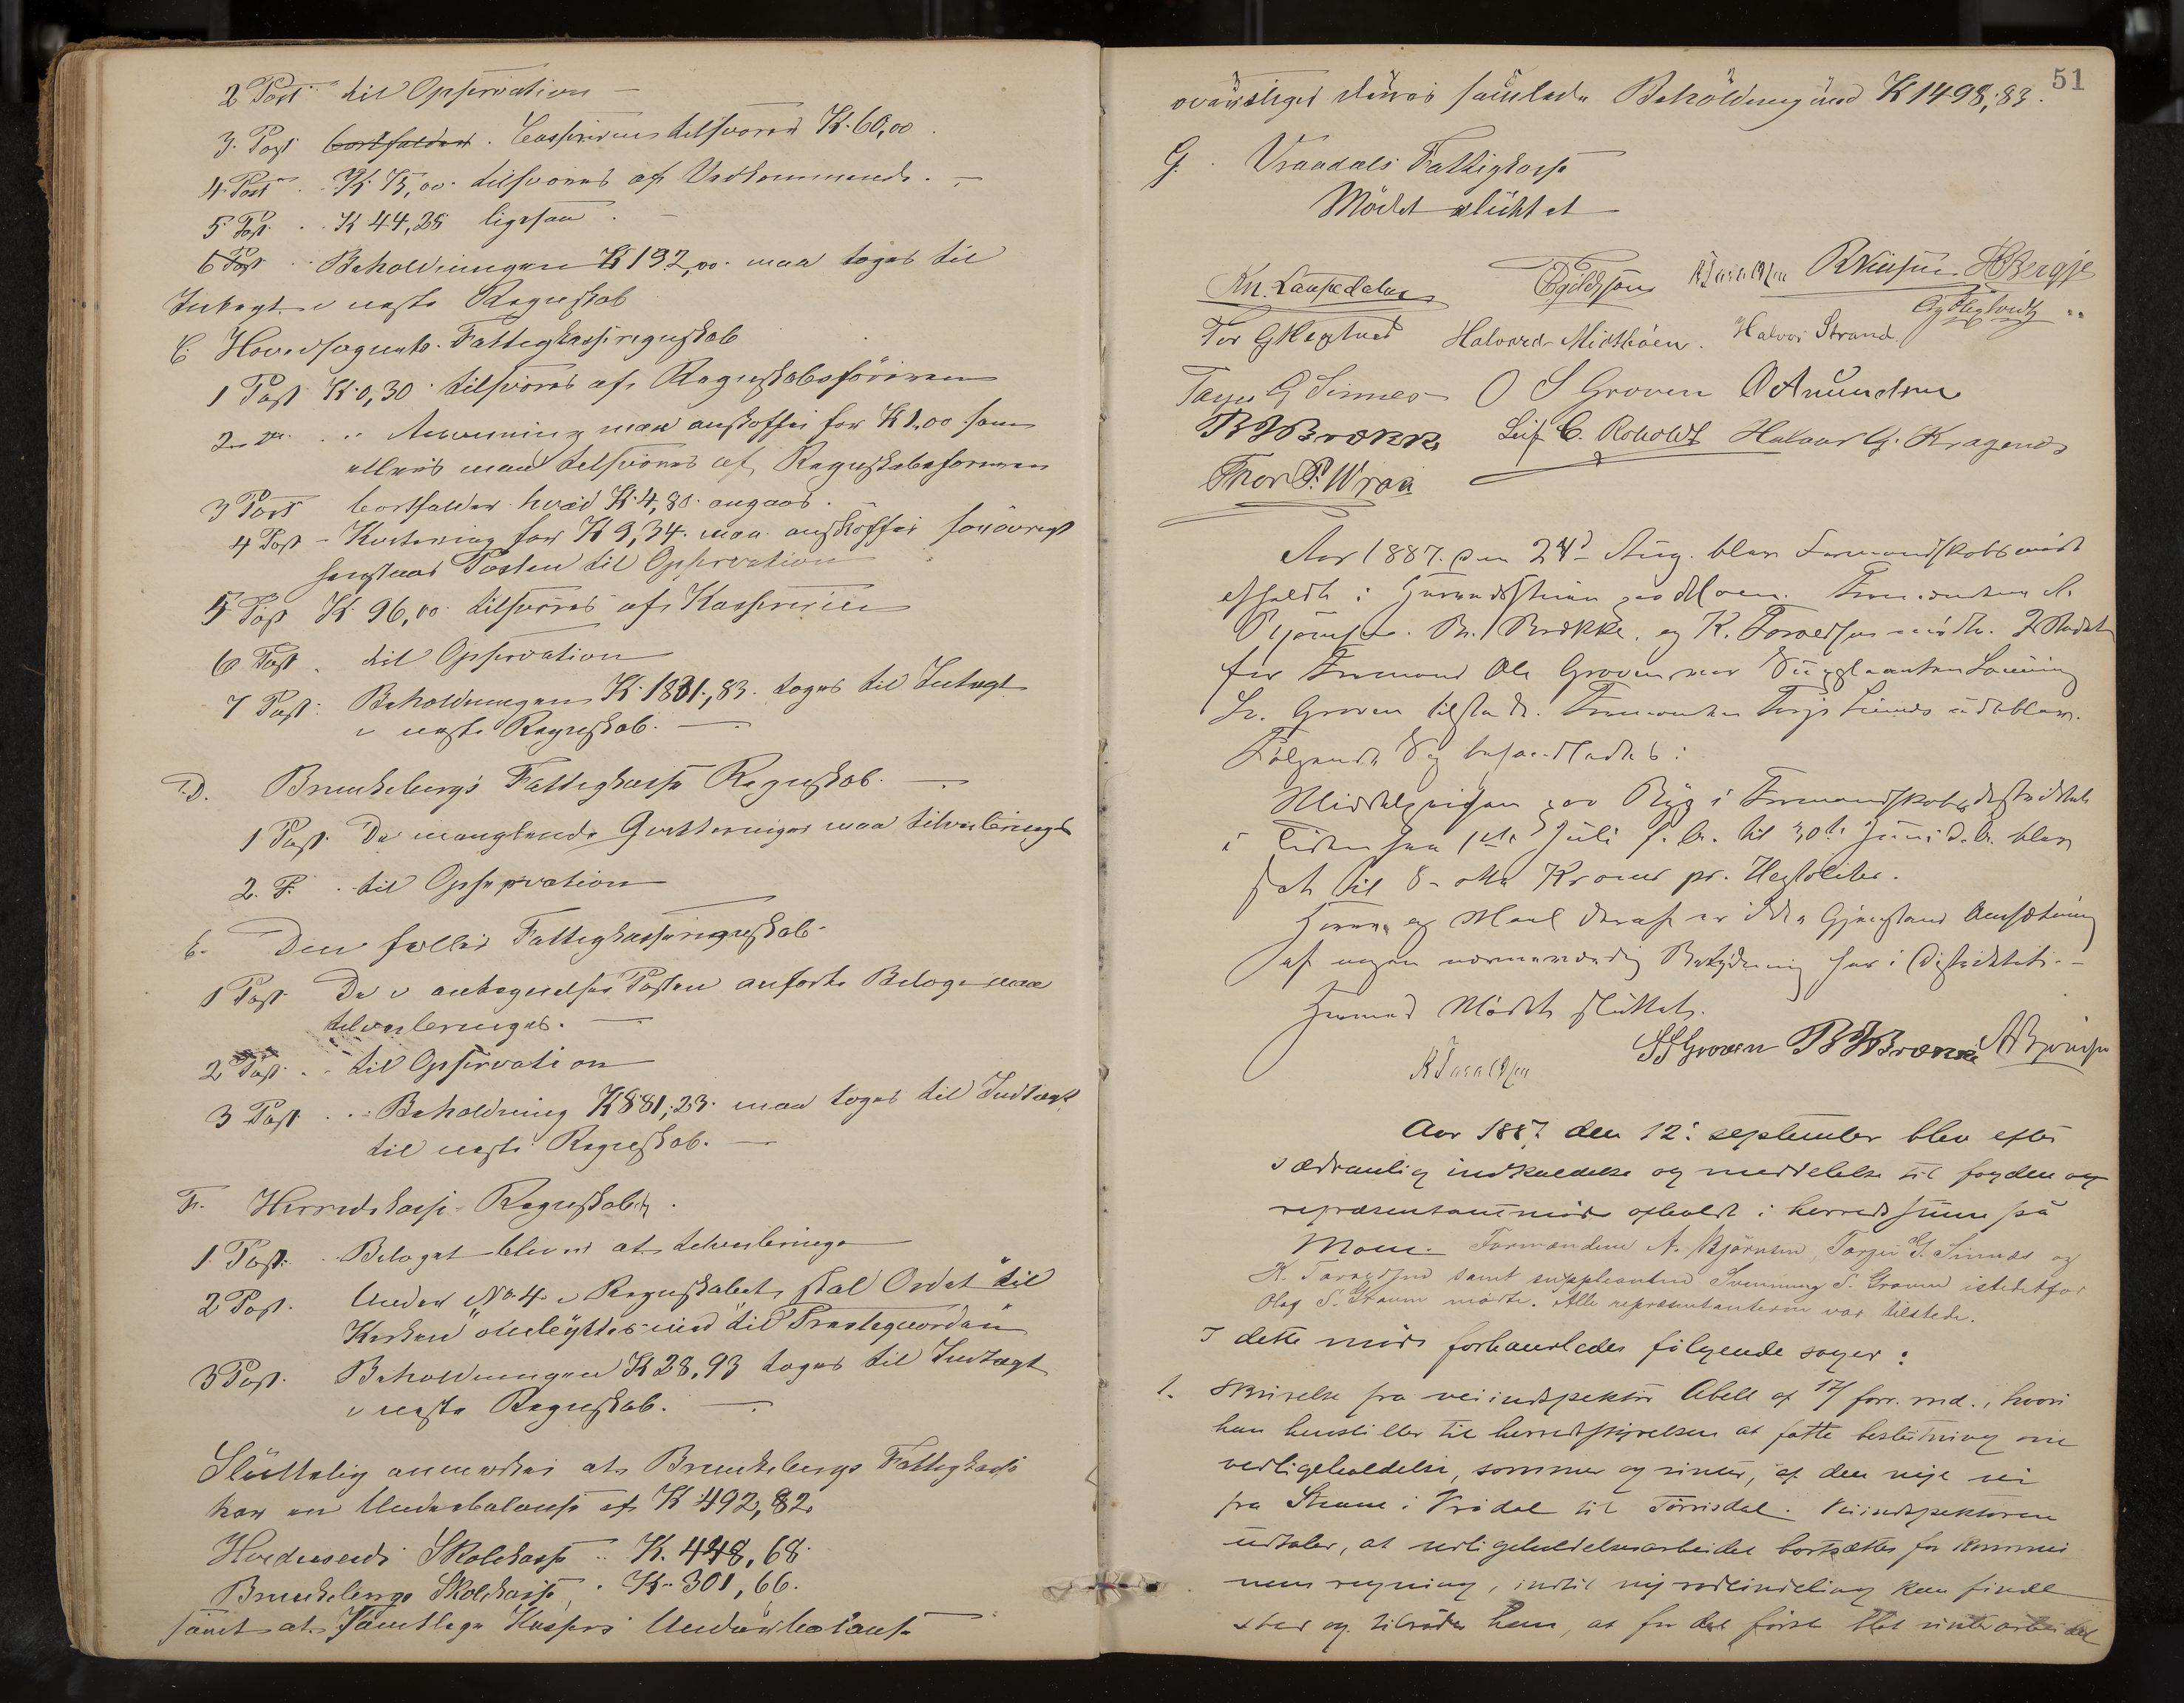 2 Post til Observation
3. Post bortfalder. Casseren tilsvarer K. 60,00.
4. Post .. K. 75,00. tilsvares af Vedkommende.
5 Post .. K 44,28 ligesaa.
6 Post .. Beholdningen K 192,00. maa tages til
Indtægt i neste Regnskab
C. Hovedsognets Fattigkasseregnskab
1 Post K. 0,30 tilsvares af Regnskabsføreren
2 .. Anvisning maa anskaffes for K 1,00 som
ellers maa tilsvares af Regnskabsføreren
3 Post bortfalder hvad K. 4,80. angaar.
4 Post - Kvittering for K 9,34. maa anskaffes forøvrigt
henstaar Posten til Observation
5 Post K. 96,00 tilsvares af Kassereren
6 Post . til Observation
7 Post. Beholdningen K. 1831,83. tages til Indtægt
i neste Regnskab.
D. Brunkebergs Fattigkasse Regnskab.
1 Post. De manglende Qvitteringer maa tilveiebringes
2. P. . til Observation
E. Den fælles Fattigkasseregnskab.
1 Post De i antegnelses Posten anførte Belage maa
tilveiebringes.
2 Post .. til Observation
3 Post ... Beholdning K 881,23. maa tages til Indtægt
til neste Regnskab.
F. Herredskasse-Regnskabet.
1. Post. Belaget bliver at tilveiebringe
2 Post. Under No 4 i Regnskabet skal Ordet "til
Kirken" ombyttes med "til Prestegaarden"
3 Post. Beholdningen K 28,93 tages til Indtægt
i neste Regnskab.
Sluttelig anmerkes at Brunkebergs Fattigkasse
har en Underbalanse af K 492,82
Hvideseids Skolekasse .. K. 448,68
Brunkebergs Skolekasse . K. 301,66.
samt at samtlige Kassers Underbalanse
51
overstiger deres samlede Beholdning med K 1498,83.
G. Vraadals Fattigkasse
Mødet sluttet
Kn. Laupedalen Egildsøn K Taraldsen H Bergje
Tor G Heglund Halvard Midtbøen. Halvor Strand.
Tarjei G Sinnes O S Groven O Amundsen
B J Brække Leif C. Roholdt Halvor G. Kragenes
Thor P. Wraa
Aar 1887. den 24de Aug. blev Formandskabsmøde
afholdt i Herredsstuen paa Moen. Formændene A.
Bjørnsen. B. J. Brække. og K. Taraldsen mødte. I Stedet
for Formand Ole Groven var Suppleanten Sveining
S. Groven tilstede. Formanden Tarje Sinnes udeblev.
Følgende Sag behandledes:
Middelprisen paa Byg i Formandskabsdistriktet
i Tiden fra 1ste Juli f. A. til 30te Juni d. A. blev
sat til 8 - otte Kroner pr. Hectoliter.
Havre og Meel deraf er ikke Gjenstand Omsætning
af nogen nævneværdig Betydning her i Distriktet.
Hermed Mødet sluttet.
K Taraldsen S S Groven B J Brække A Bjørnsen
Aar 1887 den 12. september blev efter
sædvanlig indkaldelse og meddelelse til fogden og
repræsentantmøde afholdt i herredsstuen på
Moen. Formændene A. Bjørnsen, Tarjei G. Sinnes og
K. Taraldsen samt suppleanten Svenning S. Groven istedetfor
Olaf S. Groven mødte. Alle repræsentanterne var tilstede.
I dette møde forhandledes følgende sager:
1. Skrivelse fra veiindspektør Abell af 17/ forr. md., hvori
han henstiller til herredsstyrelsen at fatte beslutning om
vedligeholdelse, sommer og vinter, af den nye vei
fra Straum i Vrådal til Tørrisdal. Veiindspektøren
udtaler, at vedligeholdelsesarbeidet bortsættes for kommu
nens regning, indtil ny rodeinddeling kan finde
sted og tilråder ham, at for det første blot vinterarbeidet